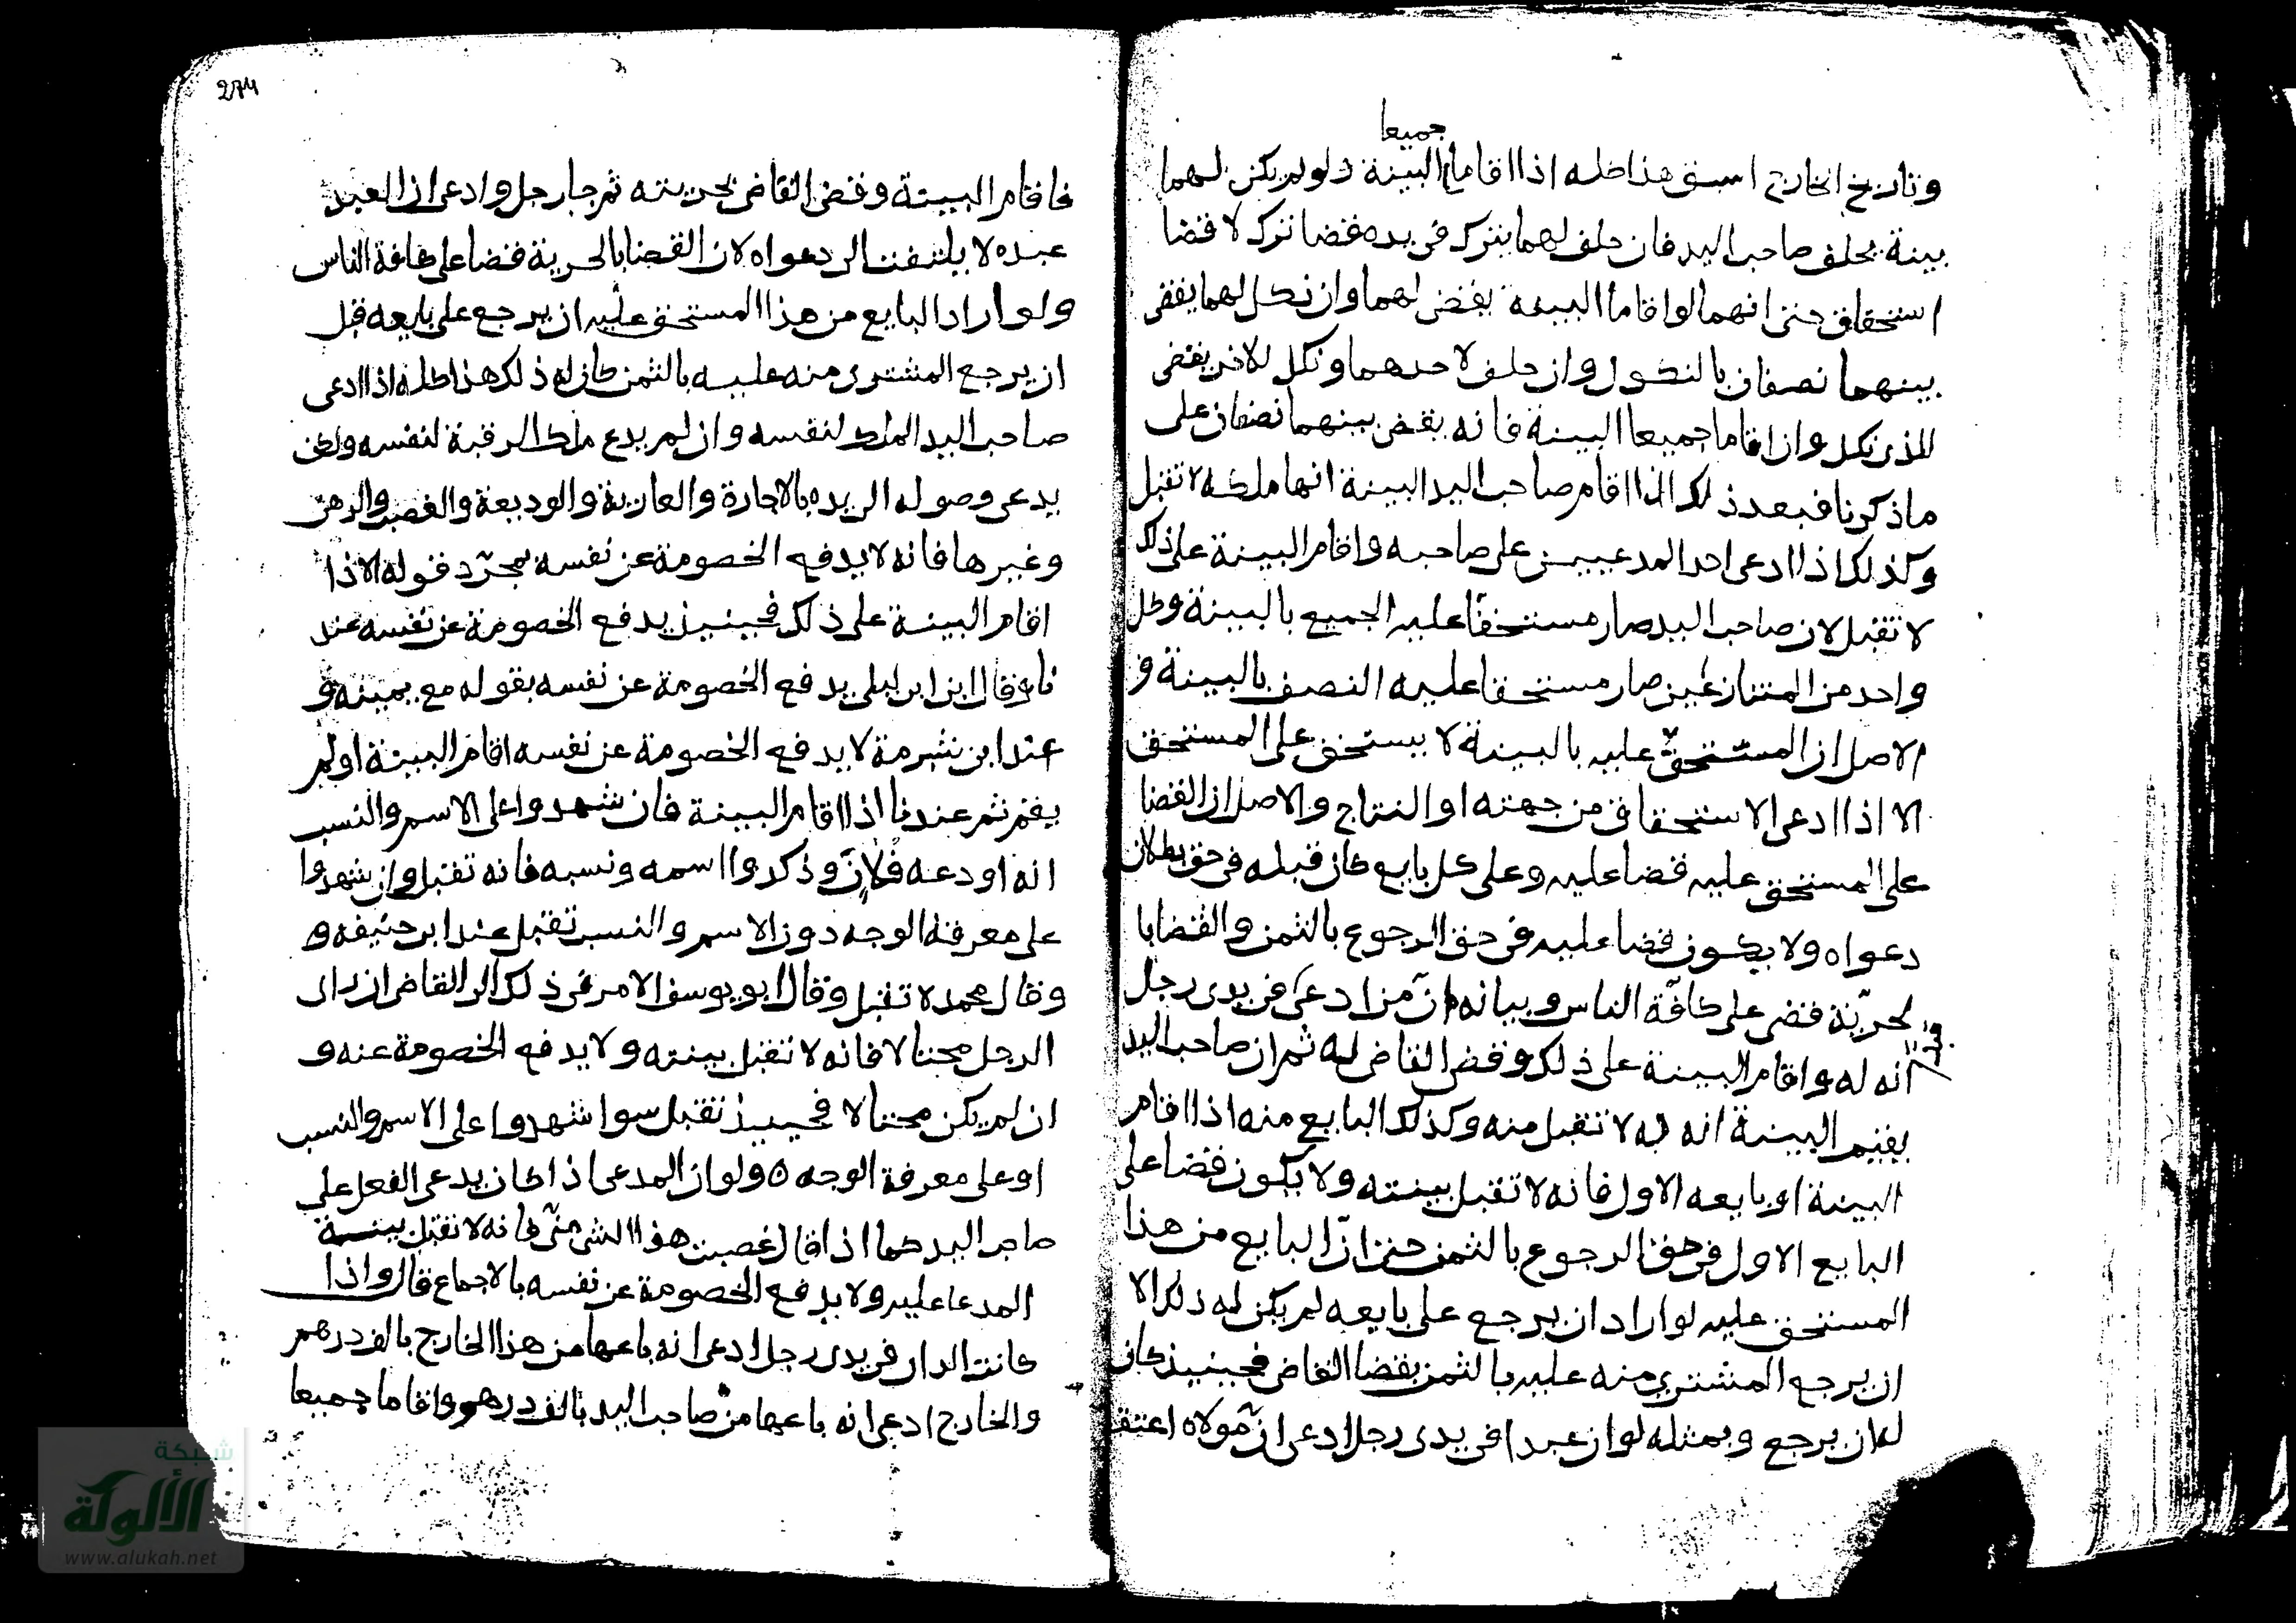 جميعا
وتاريخ الخارج اسبق هذا كله اذا اقاما البينة ولو لم يكن لهما
بينة يحلف صاحب اليد فان حلف لهما يترك في يده قضا ترك لا قضا
استحقاق حتى انهما لو اقاما البينة يقضى لهما وان نكل لهما يقضى
بينهما نصفان بالنكول وان حلف لاحدهما ونكل للاخر يقضى
للذى نكل وان اقاما جميعا البينة فانه يقضى بينهما نصفان على
ما ذكرنا فبعد ذلك اذا اقام صاحب اليد البينة انها ملكه لا تقبل
وكذلك اذا ادعى احد المدعيين على صاحبه واقام البينة على ذلك
لا تقبل لان صاحب اليد صار مستحقا عليه الجميع بالبينة وكل
واحد من المتنازعين صار مستحقا عليه النصف بالبينة و
الاصل ان المستحق عليه بالبينة لا يستحق على المستحق
الا اذا ادعى الاستحقاق من جهته او النتاج والاصل ان القضا
على المستحق عليه قضا عليه وعلى كل بايع كان قبله في حق بطلان
دعواه ولا يكون قضا عليه في حق الرجوع بالثمن والقضا با
لحريّة قضى على كافّة الناس وبيانه ان من ادعى في يدى رجل
انه له واقام البينة على ذلك وقضى القاضى له ثم ان صاحب اليد
يقيم البينة انه له لا تقبل منه وكذلك البايع منه اذا اقام
البينة او بايعه الاول فانه لا تقبل بينته ولا يكون قضا على
البايع الاول في حق الرجوع بالثمن حتى انّ البايع من هذا
المستحق عليه لو اراد ان يرجع على بايعه لم يكن له ذلك الا
ان يرجع المشترى منه عليه بالثمن بقضا القاضى فحينيذ كان
له ان يرجع وبمثله لو ان عبدا في يدى رجل ادعى انّ مولاه اعتقه
274
فاقام البينة وقضى القاضى بحريته ثم جا رجل وادعى ان العبد
عبده لا يلتفت الى دعواه لان القضا بالحرية قضا على كافة الناس
ولو اراد البايع من هذا المستحق عليه ان يرجع على بايعه قبل
ان يرجع المشترى منه عليه بالثمن كان له ذلك هذا كله اذا ادعى
صاحب اليد الملك لنفسه وان لم يدع ملك الرقبة لنفسه ولكن
يدعى وصوله الى يده بالاجارة والعارية والوديعة والغصب والرهن
وغيرها فانه لا يدفع الخصومة عن نفسه بمجرّد قوله الا اذا
اقام البينة على ذلك فحينيذ يدفع الخصومة عن نفسه عند
نا وقال ابن ابى ليلى يدفع الخصومة عن نفسه بقوله مع يمينه و
عند ابن شبرمة لا يدفع الخصومة عن نفسه اقام البينة او لم
يقم ثم عندنا اذا اقام البينة فان شهدوا على الاسم والنسب
انه اودعه فلان وذكروا اسمه ونسبه فانه تقبل وان شهدوا
على معرفة الوجه دون الاسم والنسب تقبل عند ابى حنيفه و
وقال محمد لا تقبل وقال ابو يوسف الامر في ذلك الى القاضى ان راى
الرجل محتالا فانه لا تقبل بينته ولا يدفع الخصومة عنه و
ان لم يكن محتالا فحينيذ تقبل سوا شهدوا على الاسم والنسب
او على معرفة الوجه ٥ ولو ان المدعى اذا كان يدعى الفعل على
صاحب اليد كما اذا قال غصبت هذا الشى منّى فانه لا تقبل بينة
المدعا عليه ولا يدفع الخصومة عن نفسه بالاجماع قال واذا
كانت الدار في يدى رجل ادعى انه باعها من هذا الخارج بالف درهم
والخارج ادعى انه باعها من صاحب اليد بالف درهم واقاما جميعا
شبكة
الألوكة
www.alukah.net